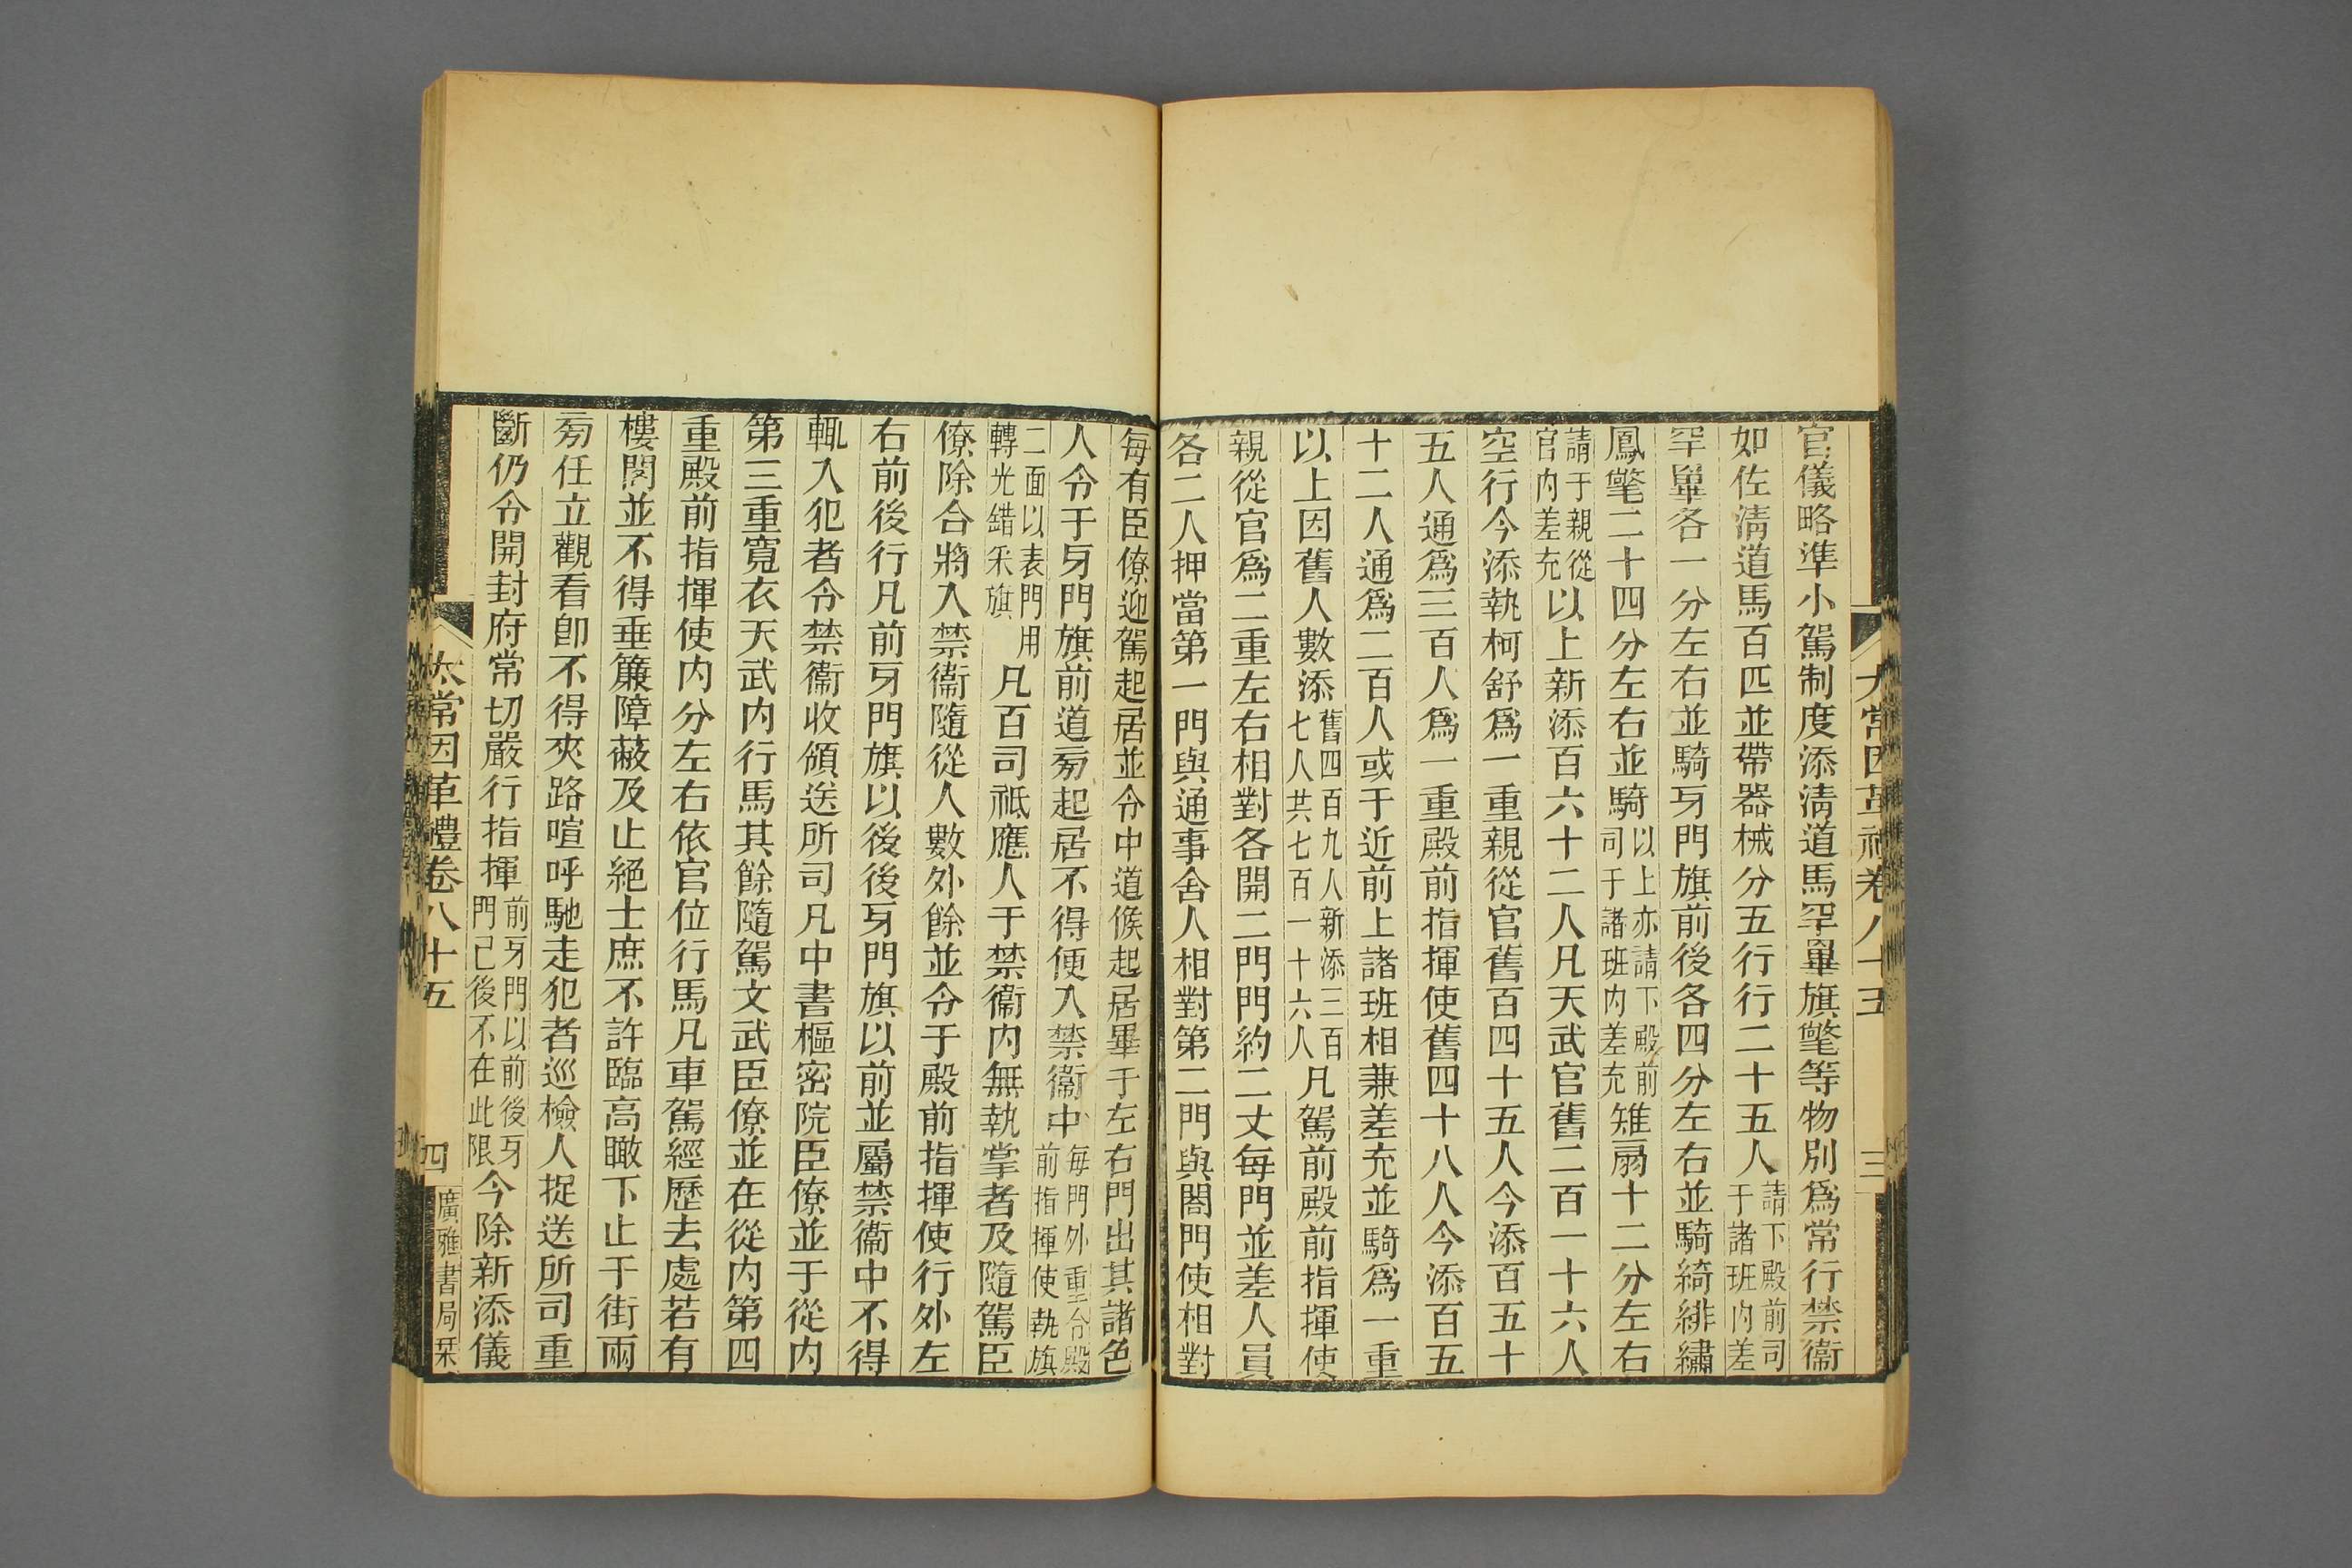 太常因革禮卷八十五
三
官儀略準小駕制度添清道馬罕罼旗氅等物別爲常行禁衞
如佐清道馬百匹並帶器械分五行行二十五人請下殿前司于諸班內差
罕罼各一分左右並騎牙門旗前後各四分左右並騎綺緋繡
鳳氅二十四分左右並騎以上亦請下殿前司于諸班內差充雉扇十二分左右
請于親從官內差充以上新添百六十二人凡天武官舊二百一十六人
空行今添執柯舒爲一重親從官舊百四十五人今添百五十
五人通爲三百人爲一重殿前指揮使舊四十八人今添百五
十二人通爲二百人或于近前上諸班相兼差充並騎爲一重
以上因舊人數添舊四百九人新添三百七人共七百一十六人凡駕前殿前指揮使
親從官爲二重左右相對各開二門門約二丈每門並差人員
各二人押當第一門與通事舍人相對第二門與閤門使相對
每有臣僚迎駕起居並令中道候起居畢于左右門出其諸色
人令于牙門旗前道旁起居不得便入禁衞中每門外重令殿前指揮使執旗
二面以表門用轉光錯采旗凡百司祗應人于禁衞內無執掌者及隨駕臣
僚除合將入禁衞隨從人數外餘並令于殿前指揮使行外左
右前後行凡前牙門旗以後後牙門旗以前並屬禁衞中不得
輒入犯者令禁衞收領送所司凡中書樞密院臣僚並于從內
第三重寬衣天武內行馬其餘隨駕文武臣僚並在從內第四
重殿前指揮使內分左右依官位行馬凡車駕經歷去處若有
樓閣並不得垂簾障蔽及止絕士庶不許臨高瞰下止于街兩
旁任立觀看卽不得夾路喧呼馳走犯者巡檢人捉送所司重
斷仍令開封府常切嚴行指揮前牙門以前後牙門已後不在此限今除新添儀
太常因革禮卷八十五
四
廣雅書局栞